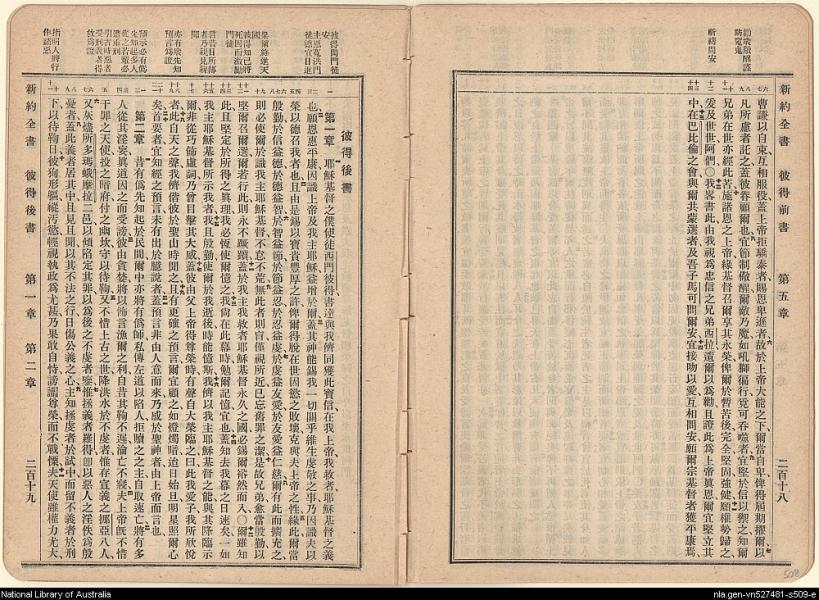 新約全書 彼得前書 第五章 二百十八
曹謙以自束互相服役蓋上帝拒驕泰者賜恩卑遜者故於上帝大能之下爾當自卑俾得屆期擢爾以
凡所慮者託之蓋彼眷顧爾也宜節制儆醒爾敵乃魔如吼獅徧行覓可吞噬者宜堅於信以禦之知爾
兄弟在世亦經此苦施諸恩之上帝緣基督召爾享其永榮俾爾於暫苦後完全堅固強健願權勢歸之
爰及世世阿們〇我畧書此由我視爲忠信之兄弟西拉遺爾以爲勸且證此爲上帝眞恩爾宜堅立其
中在巴比倫之會與爾共蒙選者及吾子馬可問爾安宜接吻以愛互相問安願爾宗基督者獲平康焉
彼得後書
第一章 耶穌基督之僕使徒西門彼得書達與我儕同獲此寶信在我上帝我救者耶穌基督之義
也願恩惠平康因識上帝及我主耶穌益增於爾蓋其神能錫我一切關乎維生虔敬之事乃因識夫以
榮以德召我者也且由是錫以寶貴豐厚之許俾爾得脫在世因慾之敗壞克與夫上帝之性緣此爾當
殷勤於信益德於德益智於智益節於節益忍於忍益虔於虔益友愛於友愛益仁慈爾有此而擴充之
則必使爾於識我主耶穌基督不怠不荒無此者則盲僅視所近已忘舊罪之潔是故兄弟愈當殷勤以
堅爾召爾選爾若行此則永不蹶躓蓋於我主我救者耶穌基督永久之國必錫爾裕然而入〇爾雖知
此且堅定於所得之眞理我必恆使爾憶之我尙在此幕時勉爾記憶宜也蓋知去我幕之日速矣一如
我主耶穌基督所示我者我且殷勤使爾於我逝後時能憶斯我儕以我主耶穌基督之能與其降臨示
爾非從巧飾虛詞乃曾目擊其大威蓋彼由父上帝得尊榮時有聲自大榮臨之曰此我愛子我所欣悅
者此自天之聲我儕偕彼於聖山時聞之且有更確之預言爾宜顧之如燈燭暗迨日始旦明星照爾心
矣首要者宜知經之預言未有出於臆說者蓋預言非由人意而來乃感於聖神者由上帝而言也
第二章 昔有僞先知起於民間爾中亦將有僞師私傳左道以陷人拒贖之之主自取速亡將有多
人從其淫妄眞道因之而受謗彼由貪婪將以飾言漁爾之利自昔其鞫不遲淪亡不寢夫上帝旣不惜
干罪之天使投之暗府付之幽坎守以待鞫又不惜上古之世降洪水於不虔者惟存宣義之挪亞八人
又灰燼所多瑪蛾摩拉二邑以傾陷定其罪以爲後之不虔者鑒惟拯義者羅得卽以惡人之淫佚爲殷
憂者蓋此義者居其中且見且聞以其不法之行日傷公義之心主知拯虔者於試中而留不義者於刑
下以待鞫日彼狥形軀縱汚慾輕視執政爲尤甚乃果敢自恃謗讟尊榮而不戰慄夫天使雖權力尤大
新約全書 彼得後書 第一章 第二章 二百十九
National Library of Australia
nla.gen-vn527481-s509-e